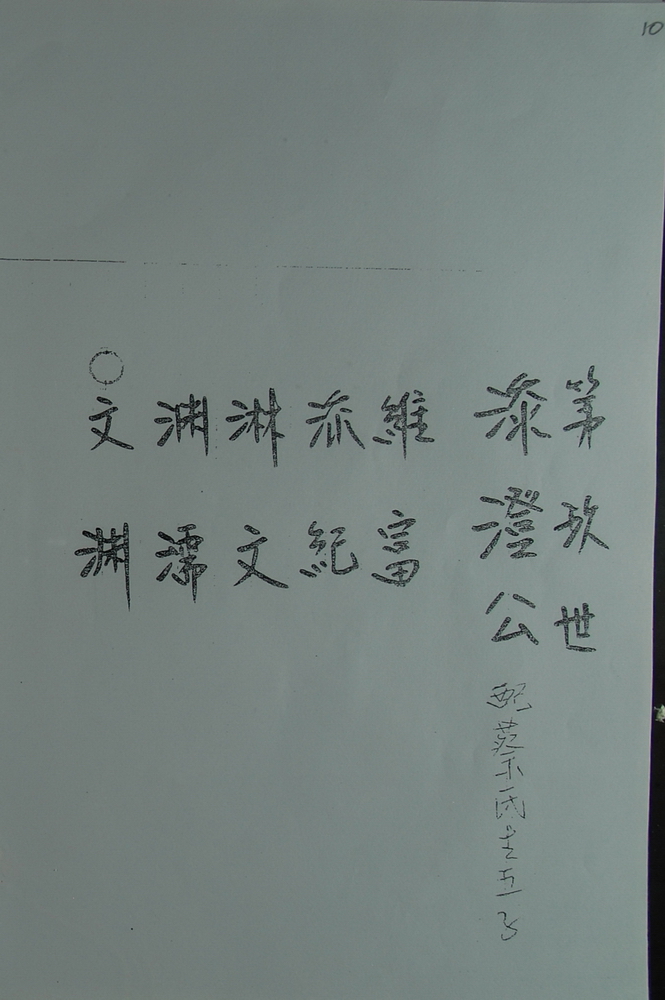 10
第玖世
添澄公 配蔡氏生五子
維富
紀
淋文
渊濡
○文渊